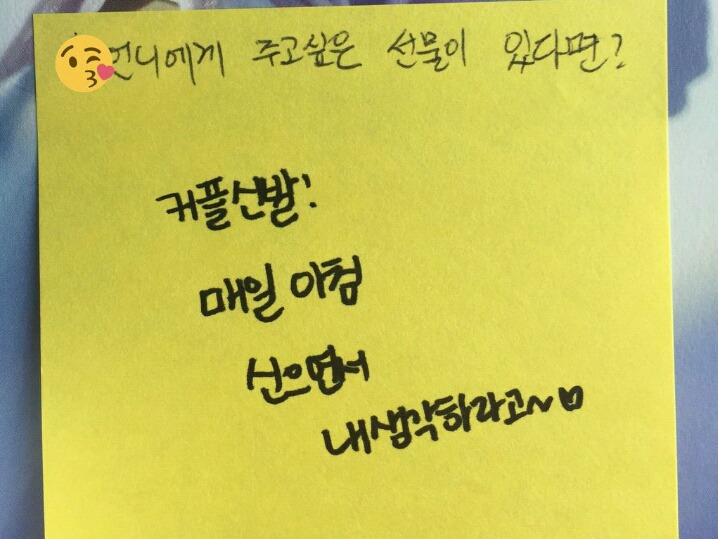 언니에게 주고싶은 선물이 있다면?
커플신발!
매일 아침
신으면서
내생각하라고~ㅁ